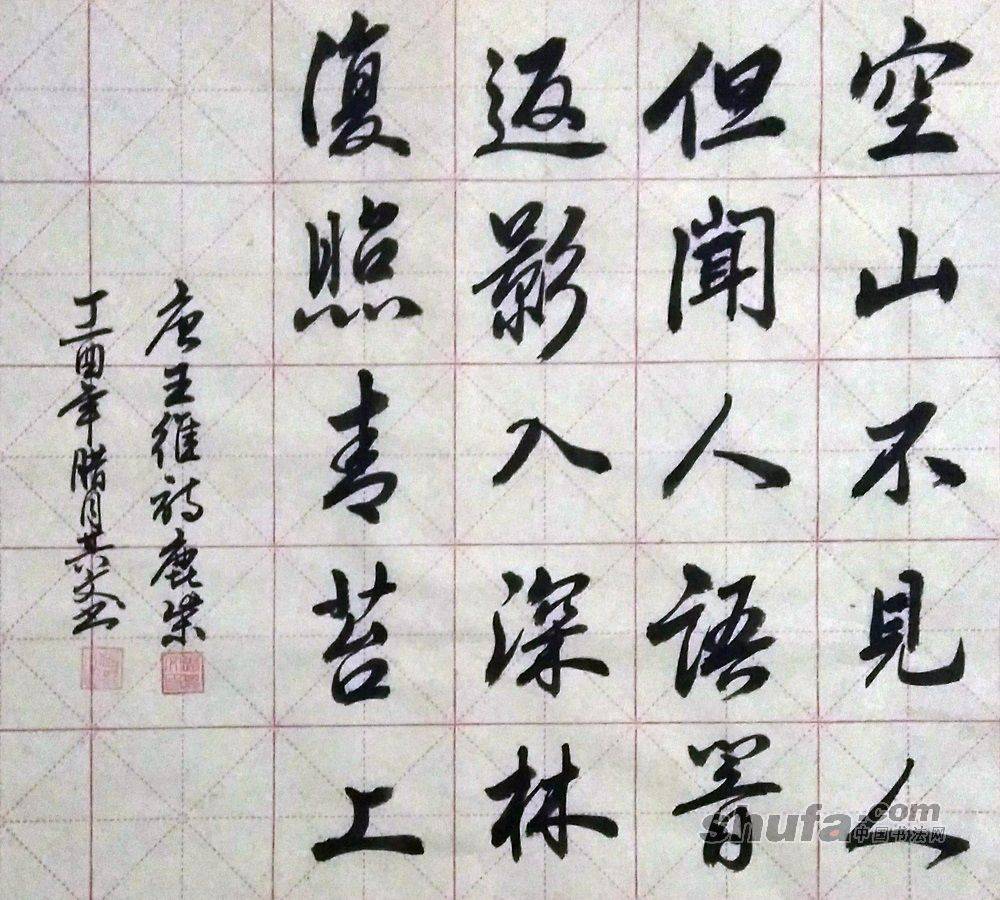 空山不見人
但聞人語響
返影入深林
復照青苔上
唐王維詩鹿柴
丁酉年腊月其文书
shufa.com
中国书法网